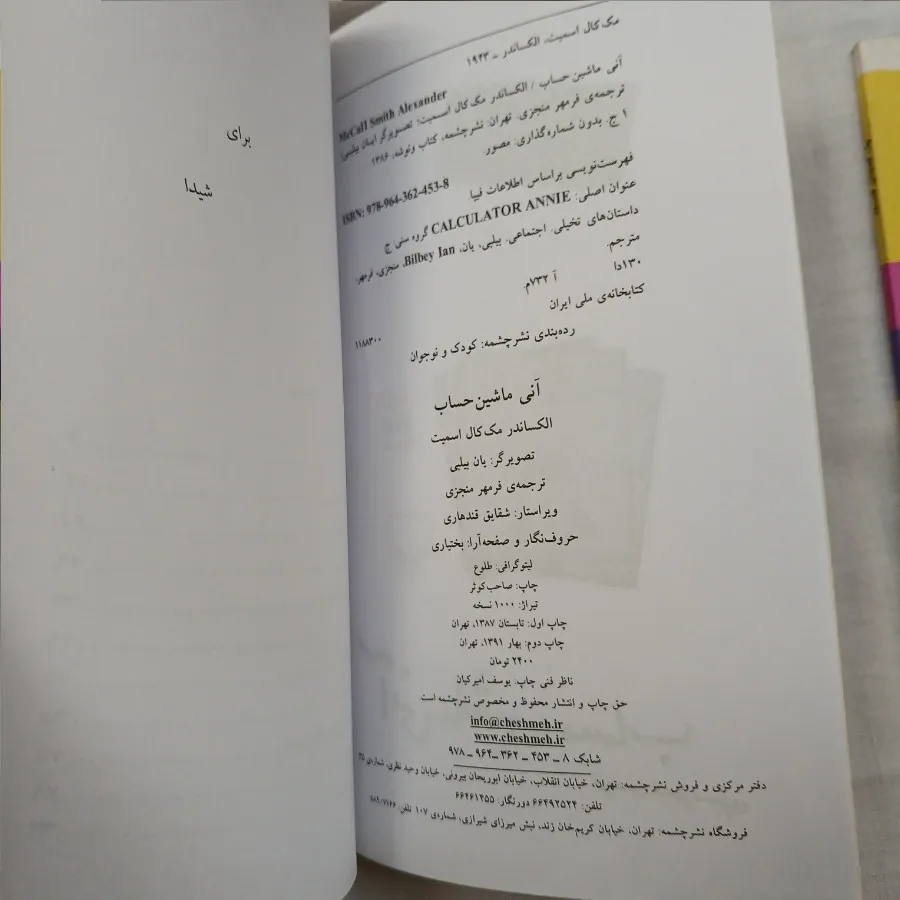 برای
شیدا
مک‌کال اسمیت، الکساندر ـ ۱۹۲۳
McCall Smith Alexander
آنی ماشین حساب / الکساندر مک‌کال اسمیت؛ تصویرگر ایان بیلبی؛
ترجمه‌ی فرمهر منجزی. تهران: نشرچشمه، کتاب ونوشه، ۱۳۸۶.
۱ ج. بدون شماره‌گذاری: مصور.
ISBN: 978-964-362-453-8
فهرست‌نویسی براساس اطلاعات فیپا
عنوان اصلی: CALCULATOR ANNIE گروه سنی ج
داستان‌های تخیلی. اجتماعی. بیلبی، یان، Bilbey Ian، منجزی، فرمهر،
مترجم.
۱۳۰دا آ ۷۳۲م.
کتابخانه‌ی ملی ایران
۱۱۸۸۳۰۰
رده‌بندی نشرچشمه: کودک و نوجوان
آنی ماشین حساب
الکساندر مک‌کال اسمیت
تصویرگر: یان بیلبی
ترجمه‌ی فرمهر منجزی
ویراستار: شقایق قندهاری
حروف‌نگار و صفحه‌آرا: بختیاری
لیتوگرافی: طلوع
چاپ: صاحب‌کوثر
تیراژ: ۱۰۰۰ نسخه
چاپ اول: تابستان ۱۳۸۷، تهران
چاپ دوم: بهار ۱۳۹۱، تهران
۲۴۰۰ تومان
ناظر فنی چاپ: یوسف امیرکیان
حق چاپ و انتشار محفوظ و مخصوص نشرچشمه است
info@cheshmeh.ir
www.cheshmeh.ir
شابک ۸ ـ ۴۵۳ ـ ۳۶۲ ـ۹۶۴ ـ ۹۷۸
دفتر مرکزی و فروش نشرچشمه: تهران، خیابان انقلاب، خیابان ابوریحان بیرونی، خیابان وحید نظری، شماره‌ی ۳۵
تلفن: ۶۶۴۹۲۵۲۴ دورنگار: ۶۶۴۶۱۴۵۵
فروشگاه نشرچشمه: تهران، خیابان کریم‌خان زند، نبش میرزای شیرازی، شماره‌ی ۱۰۷ تلفن: ۸۸۹۰۷۷۶۶